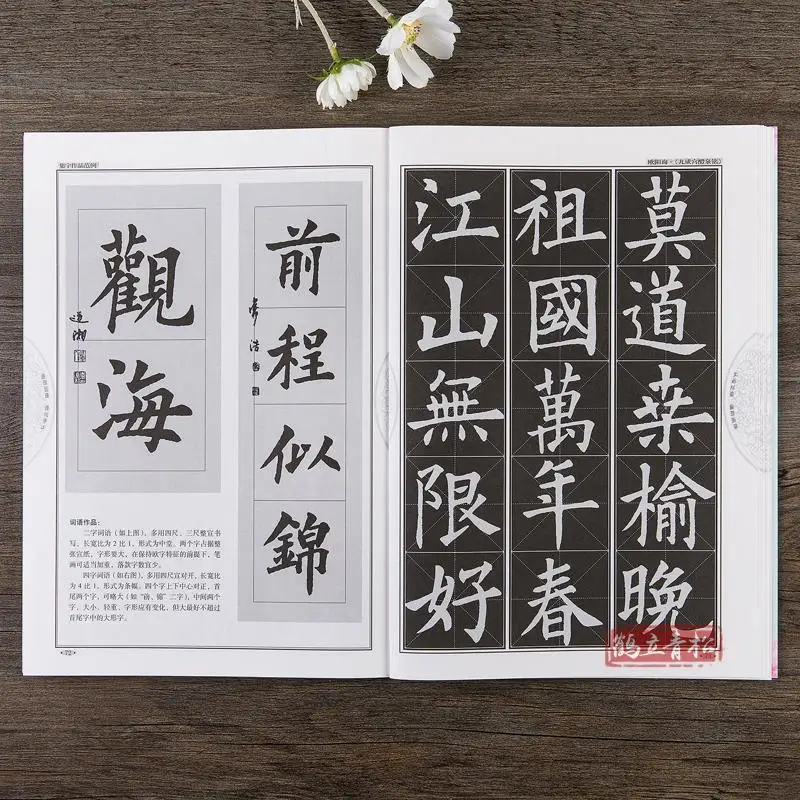 集字作品范例
觀海
前程似錦
词语作品：
二字词语（如上图），多用四尺、三尺整宣书
写，长宽比为2比1，形式为中堂。两个字占据整
张宣纸，字形要大，在保持欧字特征的前提下，笔
画可适当加重，落款字数宜少。
四字词语（如右图），多用四尺宣对开，长宽比
为4比1，形式为条幅。四个字上下中心对正，首
尾两个字，可略大（如“前、锦”二字），中间两个
字，大小、轻重、字形应有变化，但大最好不超过
首尾字中的大形字。
72
欧阳询·《九成宫醴泉铭》
莫道桒榆晚
祖國萬年春
江山無限好
鹤立青松